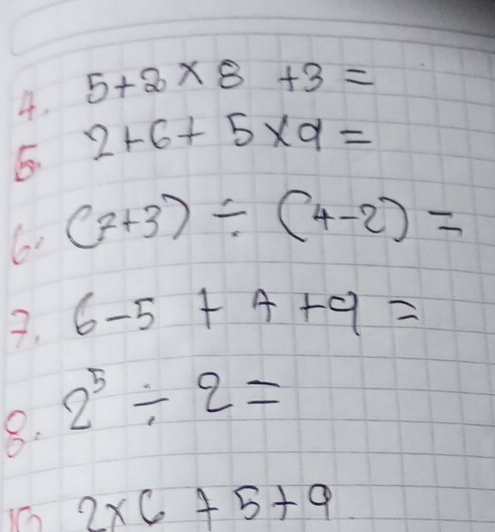 4. 5+2×8 +3=
5. 2+6+ 5×9=
6. (7+3) ÷ (4-2) =
7. 6-5 + 4 +9 =
8. 2⁵ ÷ 2=
10 2×6 +5+9